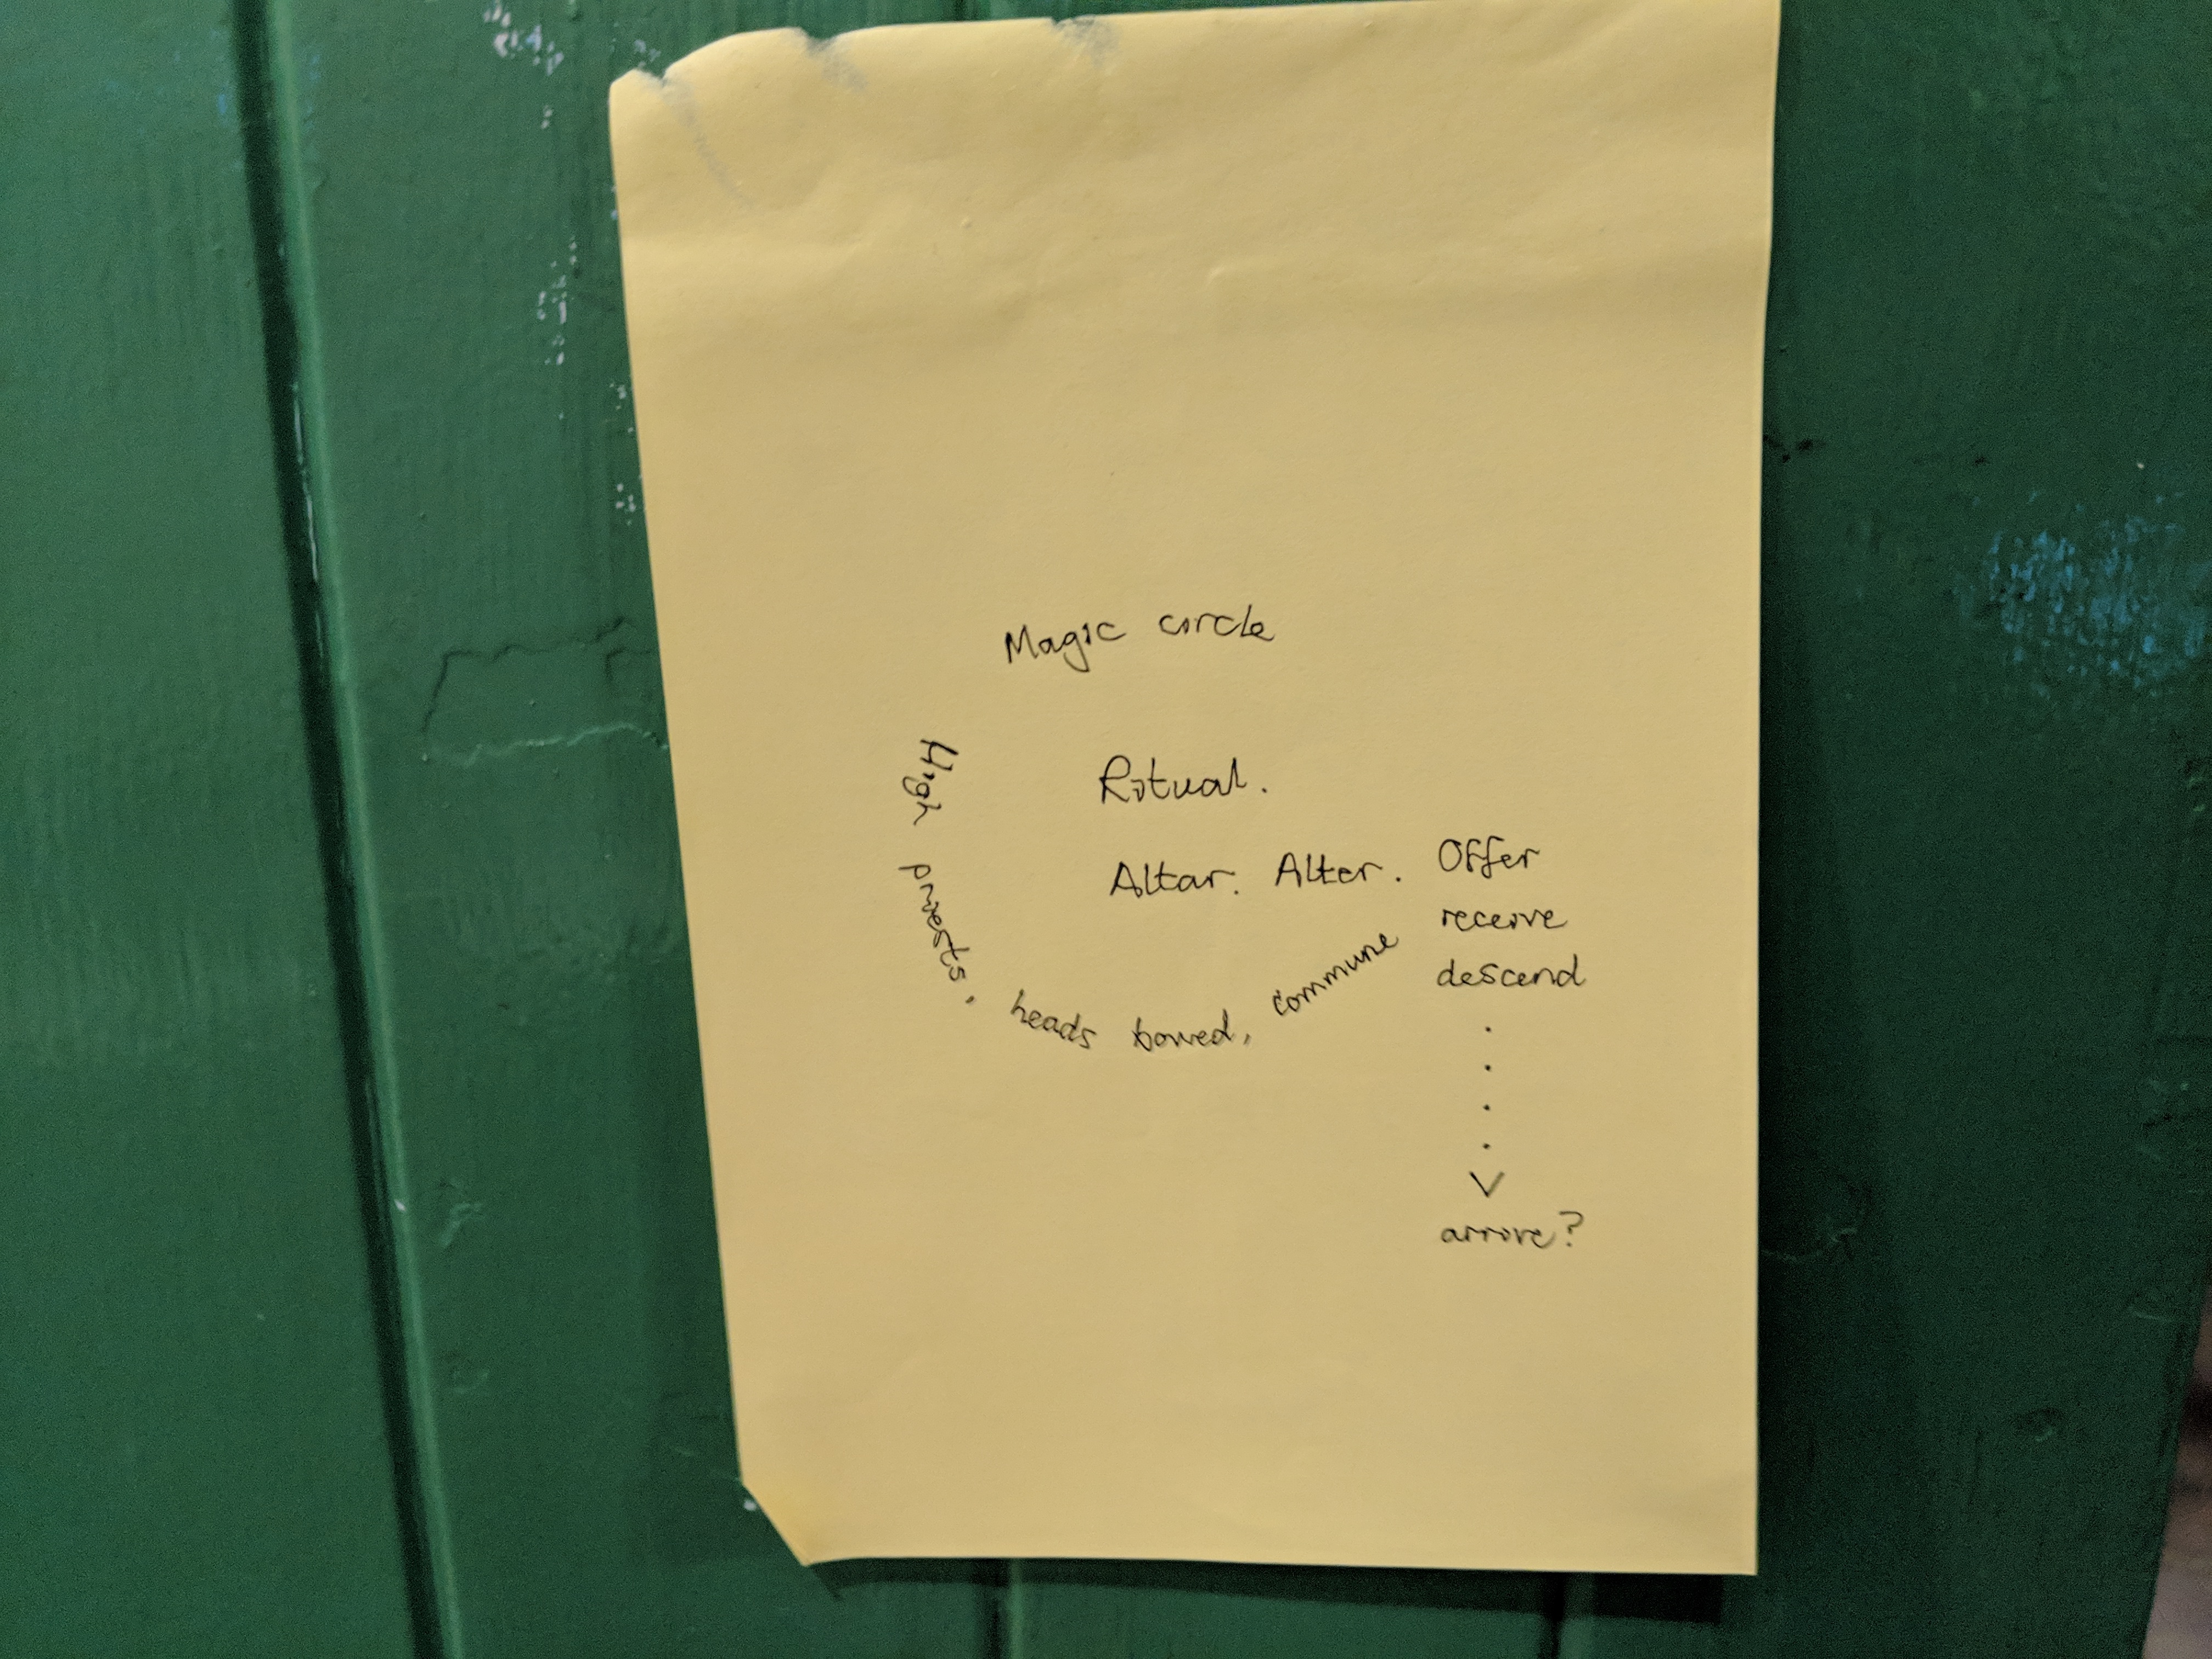 Magic circle
Ritual.
Altar. Alter.
High priests, heads bowed, commune
Offer
receive
descend
.
.
.
.
V
arrive?